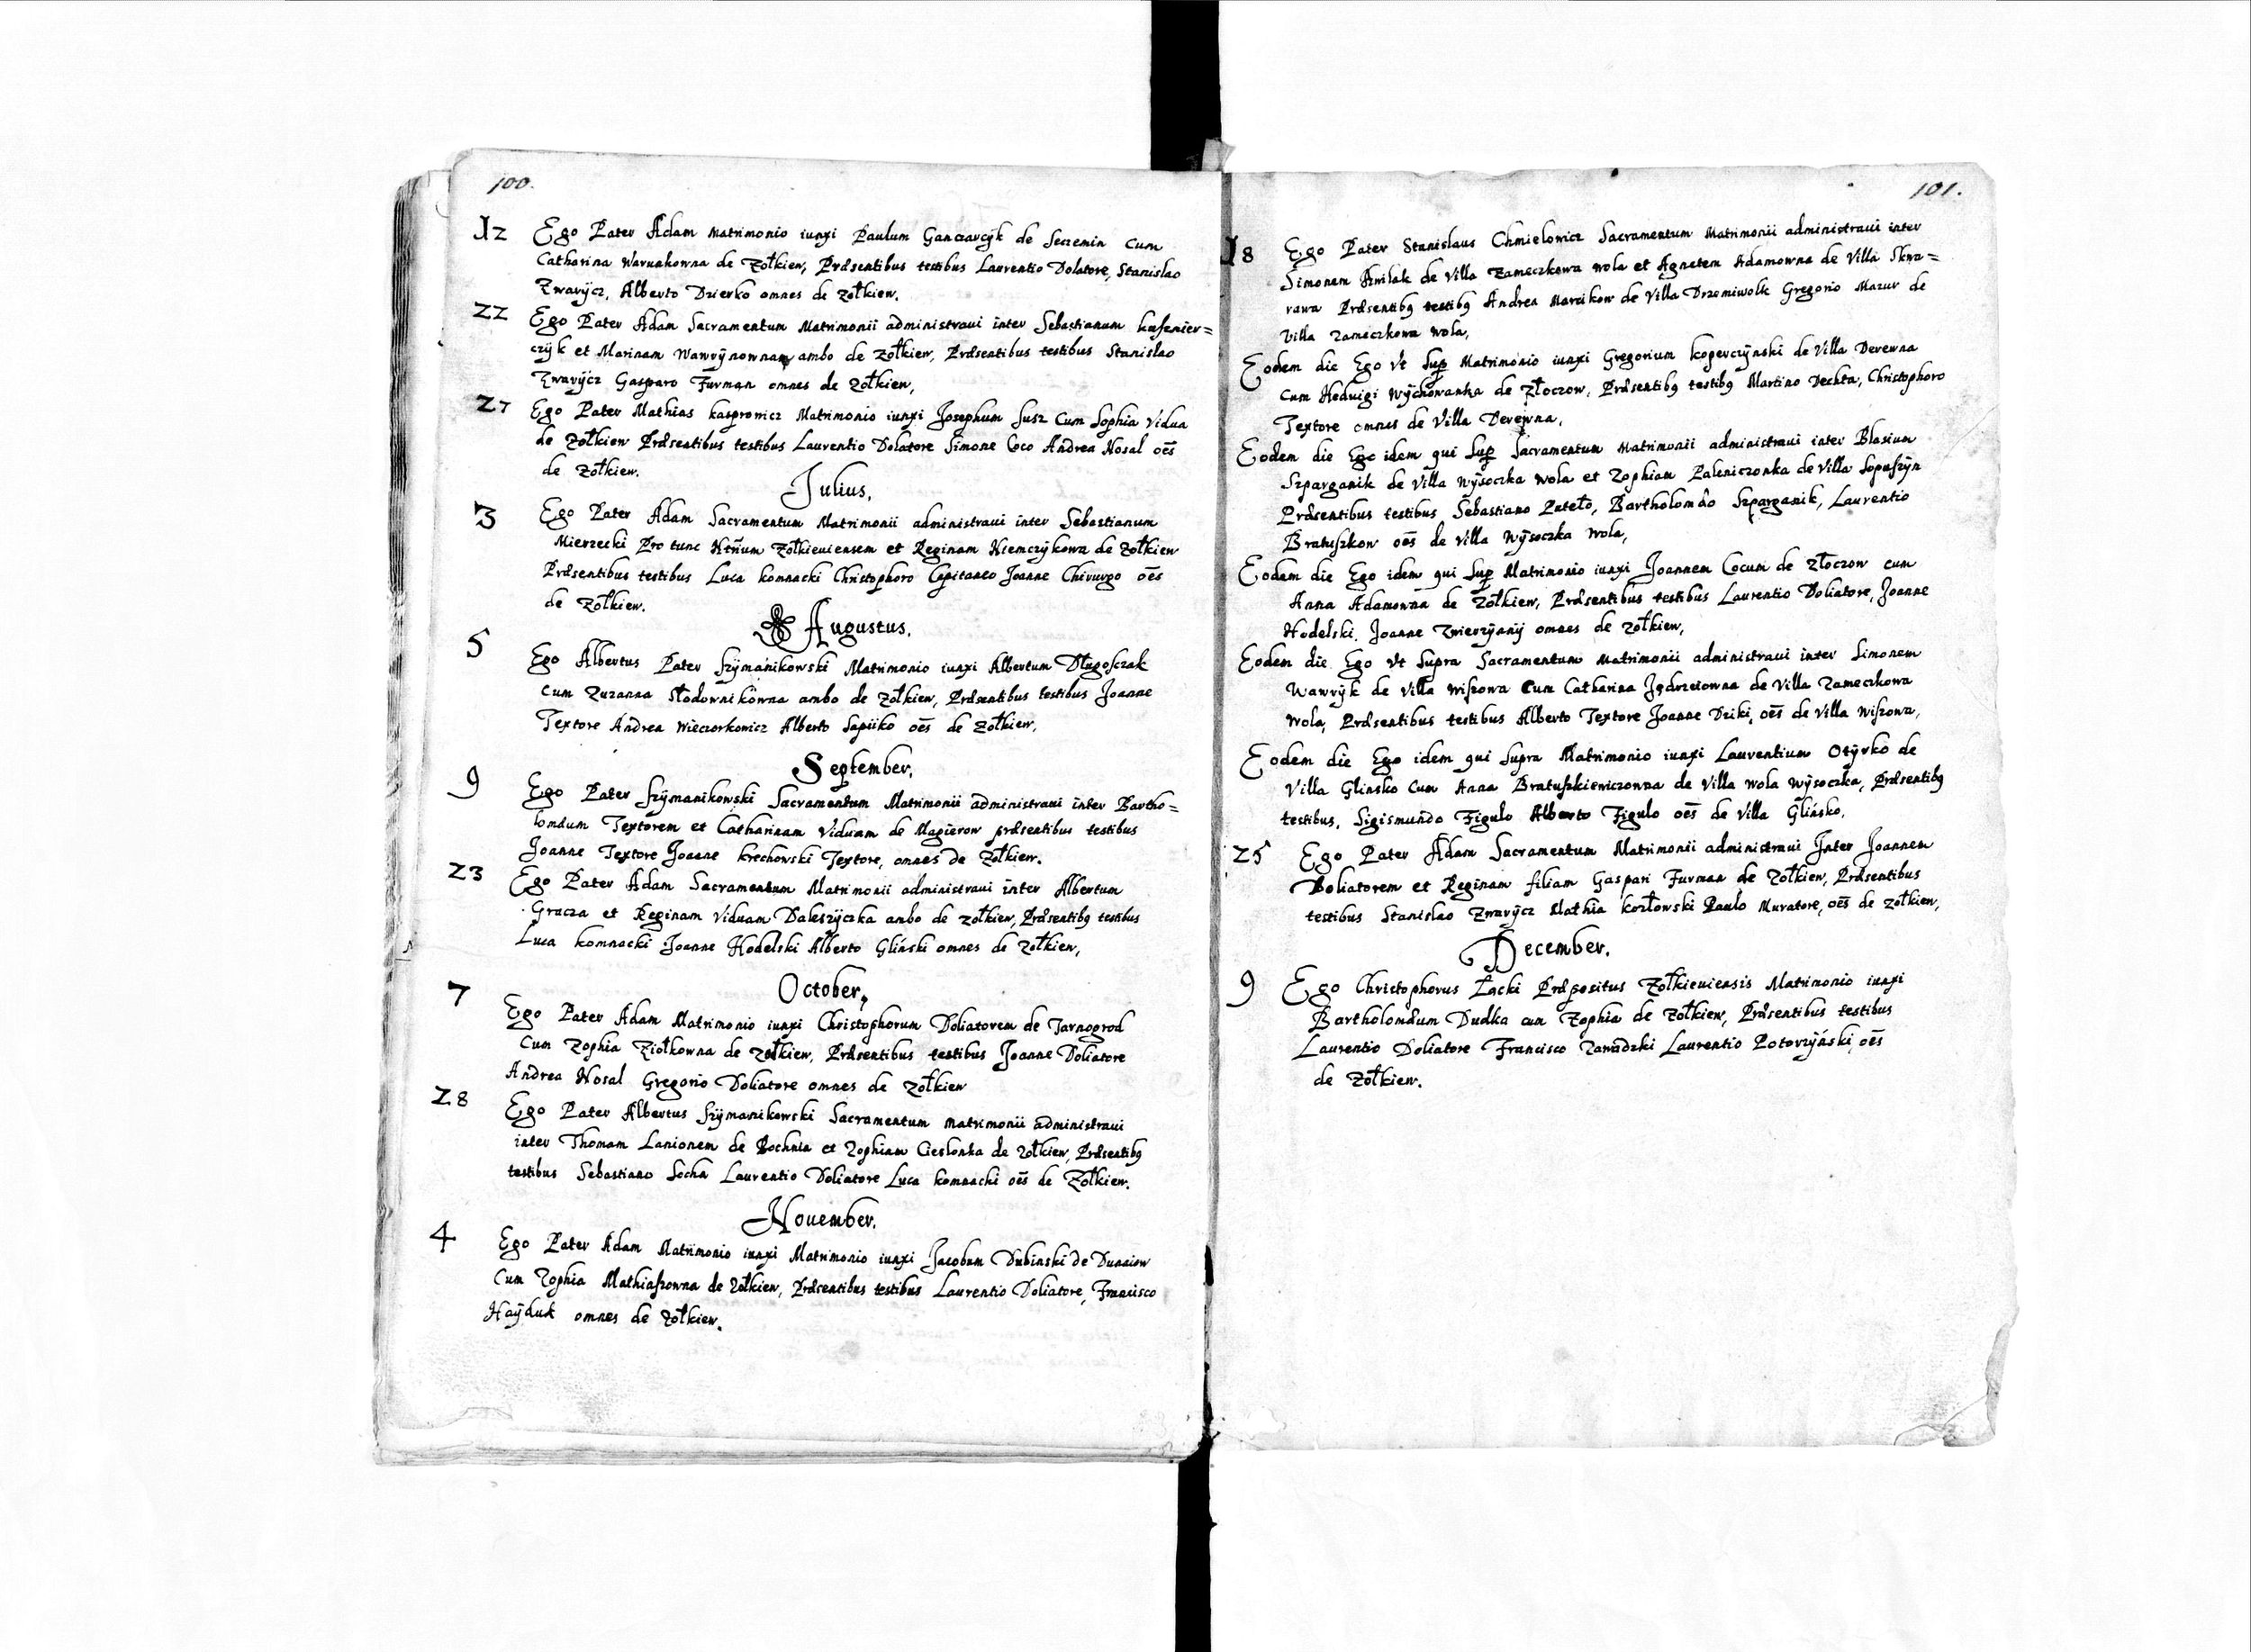 100.
12 Ego Pater Adam Matrimonio iunxi Paulum Ganczarcÿk de Seczemin Cum
Catharina Warunkowna de Zołkiew, Præsentibus testibus Laurentio Dolatore, Stanislao
Zwarÿcz, Alberto Dzierko omnes de Zołkiew.
22 Ego Pater Adam Sacramentum Matrimonii administraui inter Sebastianum kusznier=
czÿk et Marinam Wawrÿnownam ambo de Zołkiew, Præsentibus testibus Stanislao
Zwarÿcz Gasparo Furman omnes de Zołkiew,
27 Ego Pater Mathias kasprowicz Matrimonio iunxi Josephum Susz Cum Sophia Vidua
de Zołkiew Præsentibus testibus Laurentio Dolatore Simone Coco Andrea Nosal oēs
de Zołkiew.
Julius.
3 Ego Pater Adam Sacramentum Matrimonii administraui inter Sebastianum
Mierzecki Pro tunc Ntrīum Zołkieuiensem et Reginam Niemczÿkowa de Zołkiew
Præsentibus testibus Luca komnacki Christophoro Capitaneo Joanne Chirurgo oēs
de Zołkiew.
Augustus.
5 Ego Albertus Pater Szÿmanikowski Matrimonio iunxi Albertum Długosczak
Cum Zuzanna Słodownikowna ambo de Zołkiew, Præsentibus testibus Joanne
Textore Andrea Wieczorkowicz Alberto Sapiiko oēs de Zołkiew.
September.
9 Ego Pater Szÿmanikowski Sacramentum Matrimonii administraui inter Bartho=
lomæum Textorem et Catharinam Viduam de Magierow præsentibus testibus
Joanne Textore Joanne krechowski Textore, omnes de Zołkiew.
23 Ego Pater Adam Sacramentum Matrimonii administraui inter Albertum
Gracza et Reginam Viduam Daleszÿczka ambo de Zołkiew, Præsentibq testibus
Luca komnacki Joanne Hodelski Alberto Gliński omnes de Zołkiew,
October,
7 Ego Pater Adam Matrimonio iunxi Christophorum Doliatorem de Tarnogrod
Cum Zophia Ziołkowna de Zołkiew, Præsentibus testibus Joanne Doliatore
Andrea Nosal Gregorio Doliatore omnes de Zołkiew
28 Ego Pater Albertus Szÿmanikowski Sacramentum Matrimonii administraui
inter Thomam Lanionem de Bochnia et Zophiam Cieslonka de Zołkiew, Præsentibq
testibus Sebastiano Socha Laurentio Doliatore Luca komnacki oēs de Zołkiew.
Nouember.
4 Ego Pater Adam Matrimonio iunxi Matrimonio iunxi Jacobum Dubinski de Dunaiow
Cum Zophia Mathiaszowna de Zołkiew, Præsentibus testibus Laurentio Doliatore, Francisco
Haÿduk omnes de Zołkiew.
101.
18 Ego Pater Stanislaus Chmielowicz Sacramentum Matrimonii administraui inter
Simonem de Villa Zameczkowa wola et Agnetem Adamowna de Villa Skwa=
rawa Præsentibq testibq Andrea Marcikow de Villa Drzemiwolk Gregorio Mazur de
Villa Zameczkowa wola,
Eodem die Ego Vt Sup Matrimonio iunxi Gregorium koperczÿnski de Villa Derewna
Cum Heduigi Wÿchowanka de Złoczow, Præsentibq testibq Martino Dechta, Christophoro
Textore omnes de Villa Derewna,
Eodem die Ego idem qui Sup Sacramentum Matrimonii administraui inter Blasium
Szparganik de Villa Wÿsoczka Wola et Zophiam Paleniczonka de Villa Sopuszÿn
Præsentibus testibus Sebastiano Puteło, Bartholomæo Szparganik, Laurentio
Bratuszkow oēs de Villa Wÿsoczka Wola,
Eodem die Ego idem qui Sup Matrimonio iunxi Joannem Cocum de Złoczow cum
Anna Adamowna de Zołkiew, Præsentibus testibus Laurentio Doliatore, Joanne
Hodelski, Joanne Zwierzÿnnÿ omnes de Zołkiew,
Eodem die Ego Vt Supra Sacramentum Matrimonii administraui inter Simonem
Wawrÿk de Villa Wiszowa Cum Catharina Jędrzeiowna de Villa Zameczkowa
Wola, Præsentibus testibus Alberto Textore Joanne Dziki, oēs de Villa Wiszowa,
Eodem die Ego idem qui Supra Matrimonio iunxi Laurentium Otÿrko de
Villa Glinsko Cum Anna Bratuszkiewiczonna de Villa Wola Wÿsoczka, Præsentibq
testibus, Sigismundo Figulo Alberto Figulo oēs de Villa Glińsko,
25 Ego Pater Adam Sacramentum Matrimonii administraui Inter Joannem
Doliatorem et Reginam filiam Gaspari Furman de Zołkiew, Præsentibus
testibus Stanislao Zwarÿcz Mathia kozłowski Paulo Muratore, oēs de Zołkiew,
December.
9 Ego Christophorus Łacki Præpositus Zołkieuiensis Matrimonio iunxi
Bartholomæum Dudka cum Zophia de Zołkiew, Præsentibus testibus
Laurentio Doliatore Francisco Zawadzki Laurentio Potorzÿński, oēs
de Zołkiew.